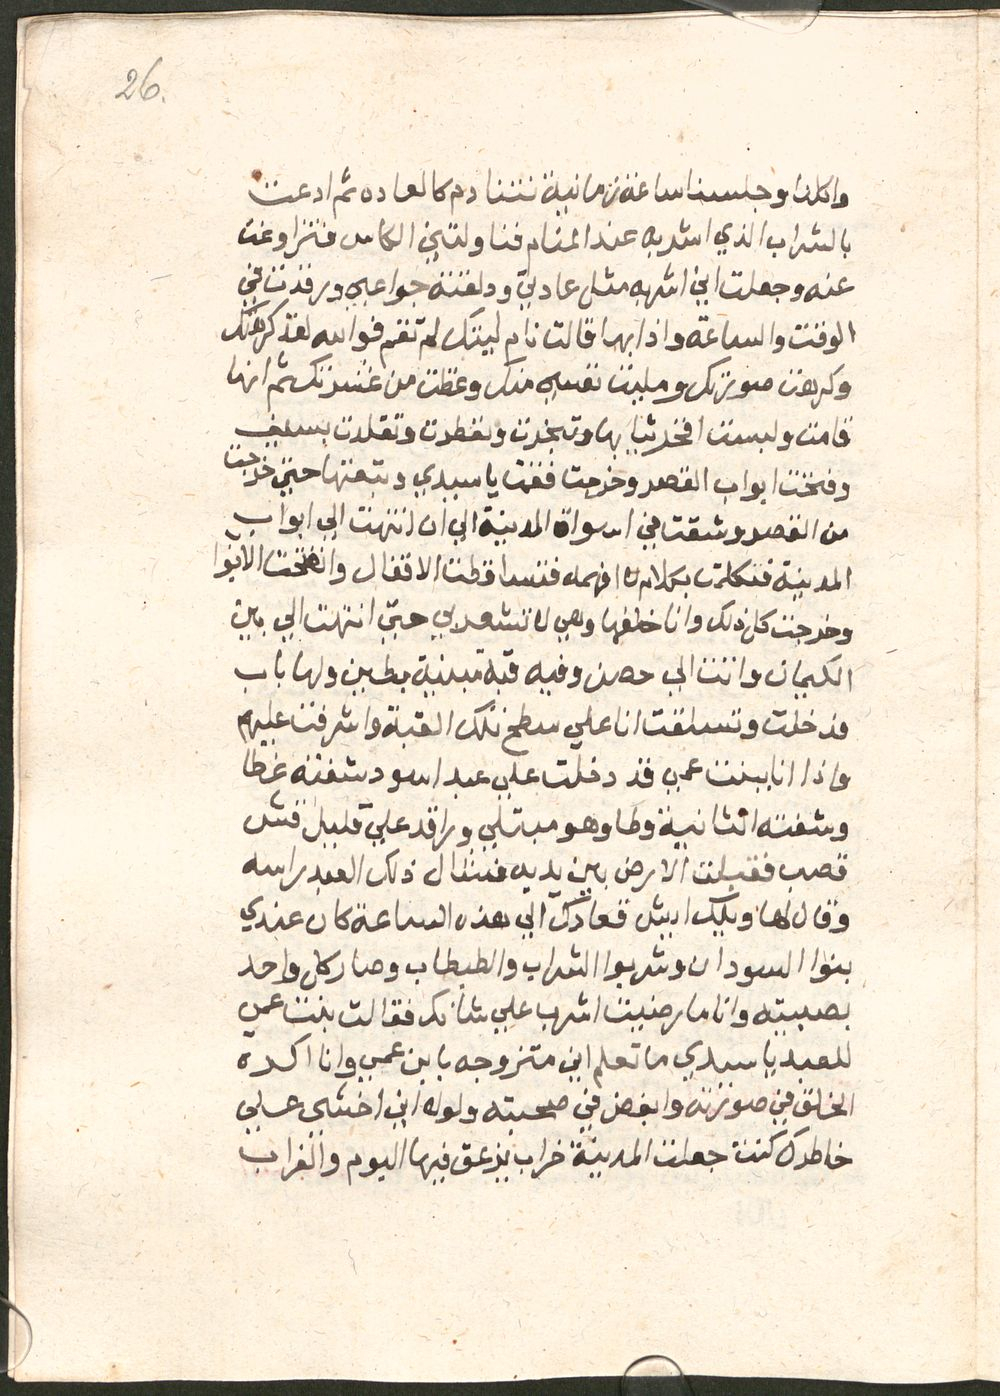 26.
واكلنا وجلسنا ساعة زمانية نتنادم كالعاده ثم ادعت
بالشراب الذي اشربه عند المنام فناولتني الكاس فتزاوغت
عنه وجعلت اني اشربه مثل عادتي ودلقته جوا عبي ورقدت في
الوقت والساعة واذا بها قالت نام ليتك لم تقم فوالله لقد كرهتك
وكرهت صورتك ومليت نفسي منك وغظت من عشرتك ثم انها
قامت ولبست افخر ثيابها وتبخرت وتقطرت وتقلدت بسيف
وفتحت ابواب القصر وخرجت فقمت يا سيدي وتبعتها حتي خرجت
من القصر وشقت في اسواق المدينة الي ان انتهت الي ابواب
المدينة فتكلمت بكلام لا افهمه فتساقطت الاقفال وانفتحت الابوا
وخرجت كل ذلك وانا خلفها وهي لا تشعر بي حتي انتهت الي بين
الكيمان واتت الي حصن وفيه قبه مبنية بطين ولها باب
فدخلت وتسلقت انا علي سطح تلك القبة واشرفت عليهم
واذا انا ببنت عمي قد دخلت علي عبد اسود شفته غطا
وشفته الثانية وطا وهو مبتلي وراقد علي قليل قش
قصب فقبلت الارض بين يديه فشال ذلك العبد راسه
وقال لها ويلك ايش قعادك الي هذه الساعة كان عندي
بنوا السودان وشربوا الشراب والطبطاب وصار كل واحد
بصبيته وانا ما رضيت اشرب علي شانك فقالت بنت عمي
للعبد يا سيدي ما تعلم اني متزوجه بابن عمي وانا اكره
الخلق في صورته وابغض في صحبته ولولا اني اخشي علي
خاطرك كنت جعلت المدينة خراب يزعق فيها البوم والغراب